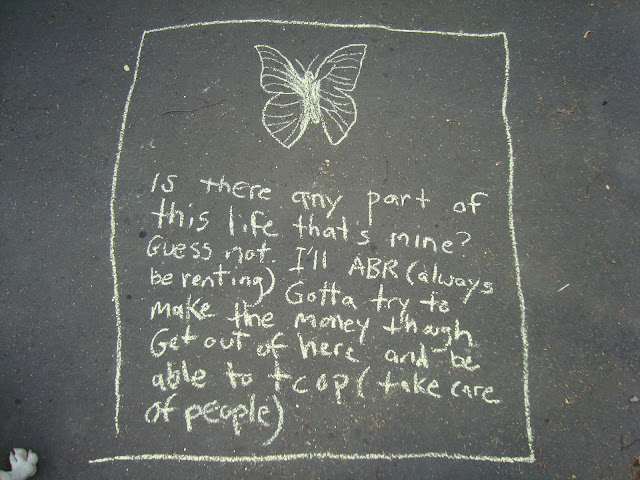 Is there any part of
this life that's mine?
Guess not. I'll ABR (always
be renting) Gotta try to
make the money though.
Get out of here and be
able to tcop (take care
of people)